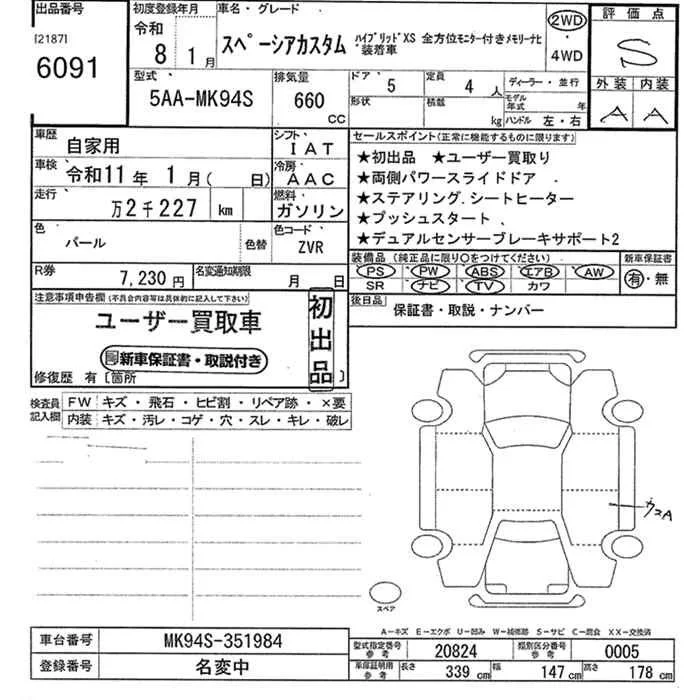 出品番号 初度登録年月 車名・グレード 評価点
[2187] 令和
6091 8年1月 スペーシアカスタム ハイブリッドXS 全方位モニター付きメモリーナビ装着車 2WD・4WD S
型式 排気量 ドア 定員 ディーラー・並行 外装 内装
5AA-MK94S 660 CC 5 4人 A A
形状 積載 kg モデル年式 年 ハンドル 左・右
車歴 自家用 シフト IAT
車検 令和11年 1月( 日) 冷房 AAC
走行 万2千227 km 燃料 ガソリン
色 パール 色替 色コード ZVR
R券 7,230円 名変通知期限 月 日
セールスポイント(正常に機能するものに限ります)
★初出品 ★ユーザー買取り
★両側パワースライドドア
★ステアリング.シートヒーター
★プッシュスタート
★デュアルセンサーブレーキサポート2
装備品 (純正品に限り○をつけてください) 新車保証書
PS PW ABS エアB AW 有・無
SR ナビ TV カワ
後日品 保証書・取説・ナンバー
注意事項申告欄(不具合内容等は具体的に記入して下さい)
ユーザー買取車
新車保証書・取説付き
初出品
修復歴 有 [箇所 ]
検査員記入欄 FW キズ・飛石・ヒビ割・リペア跡・×要
内装 キズ・汚レ・コゲ・穴・スレ・キレ・破レ
スペア
A-キズ E-エクボ U-凹み W-補修跡 S-サビ C-腐食 XX-交換済
車台番号 MK94S-351984
登録番号 名変中
型式指定番号 参考 20824 類別区分番号 参考 0005
車庫証明用 参考 長さ 339 cm 幅 147 cm 高さ 178 cm